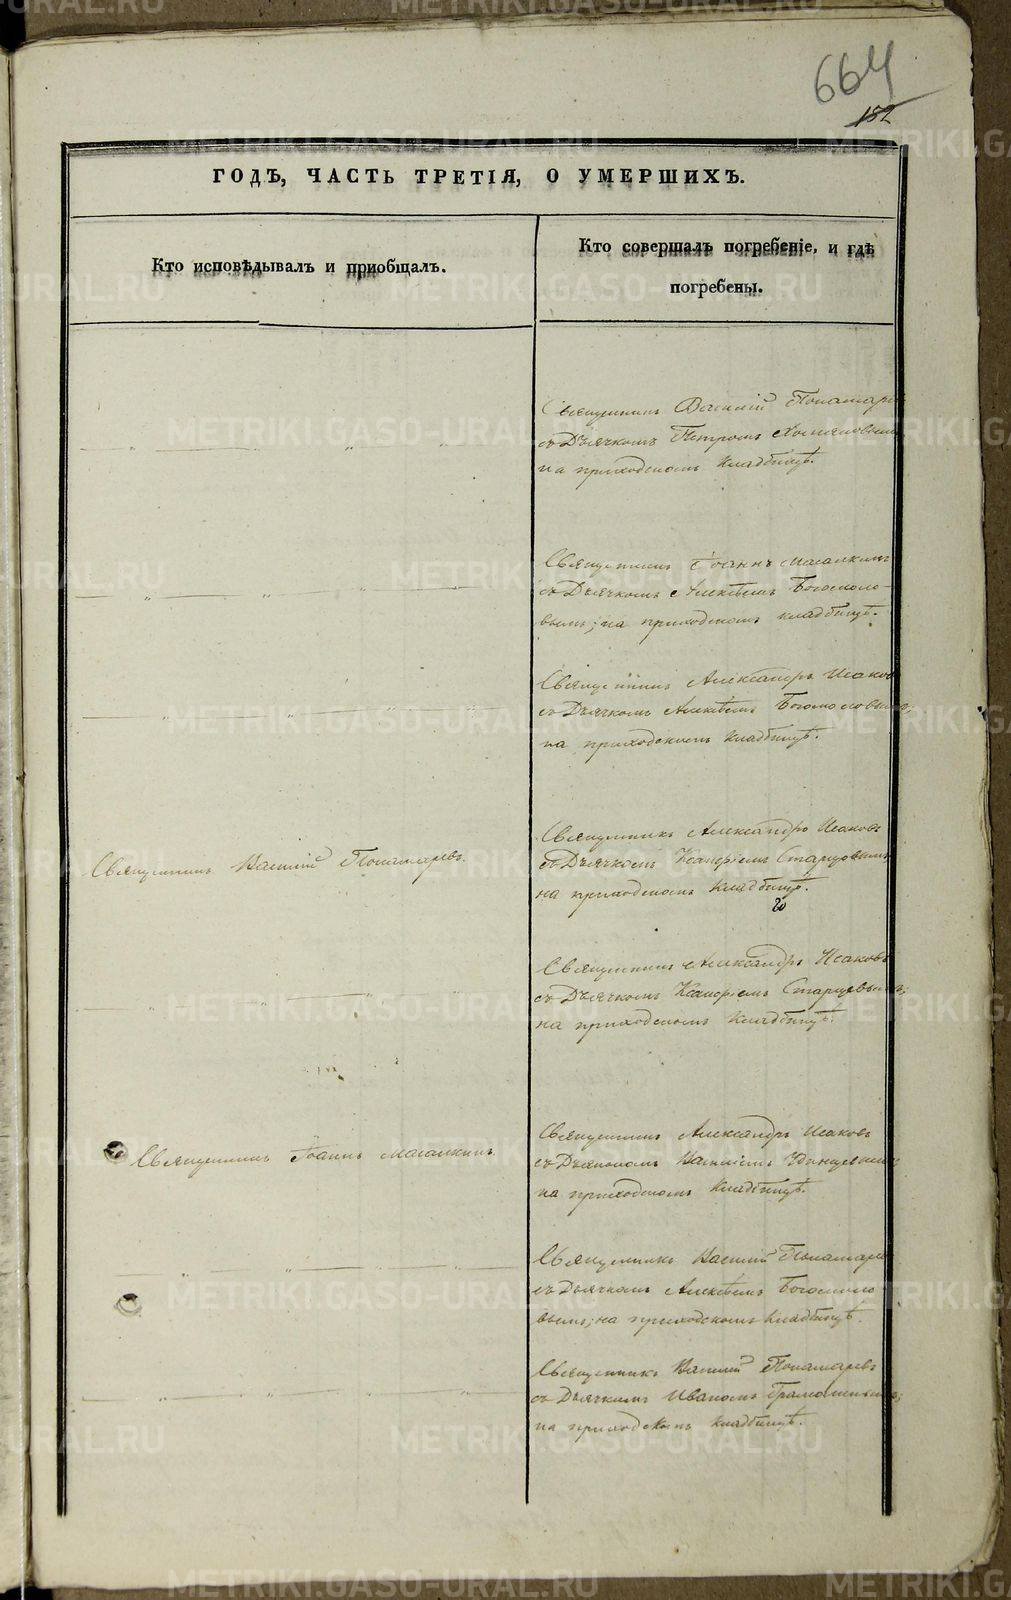 664
182
ГОДЪ, ЧАСТЬ ТРЕТІЯ, О УМЕРШИХЪ.
Кто исповѣдывалъ и приобщалъ.
Кто совершалъ погребеніе, и гдѣ
погребены.
Священникъ Василій Понамарев
съ Дьячкомъ Петромъ
на приходскомъ кладбищѣ.
Священникъ Іоаннъ Масалкинъ
съ Дьячкомъ Алексѣемъ Богомоло-
вымъ; на приходскомъ кладбищѣ.
Священникъ Александръ Исаков
съ Дьячкомъ Алексѣемъ Богомоловымъ;
на приходскомъ кладбищѣ.
Священникъ Василій Понамаревъ.
Священникъ Александръ Исаковъ
съ Дьячкомъ Старцовымъ
на приходскомъ кладбищѣ.
Священникъ Александръ Исаковъ
съ Дьячкомъ Старцевымъ;
на приходскомъ кладбищѣ.
Священникъ Іоаннъ Масалкинъ.
Священникъ Александръ Исаковъ
съ Дьякономъ Василіемъ Удинцевымъ
на приходскомъ кладбищѣ.
Священникъ Василій Понамарев
съ Дьячкомъ Алексѣемъ Богомоло
вымъ; на приходскомъ кладбищѣ.
Священникъ Василій Понамаревъ
съ Дьячкомъ Иваномъ
на приходскомъ кладбищѣ.
METRIKI.GASO-URAL.RU